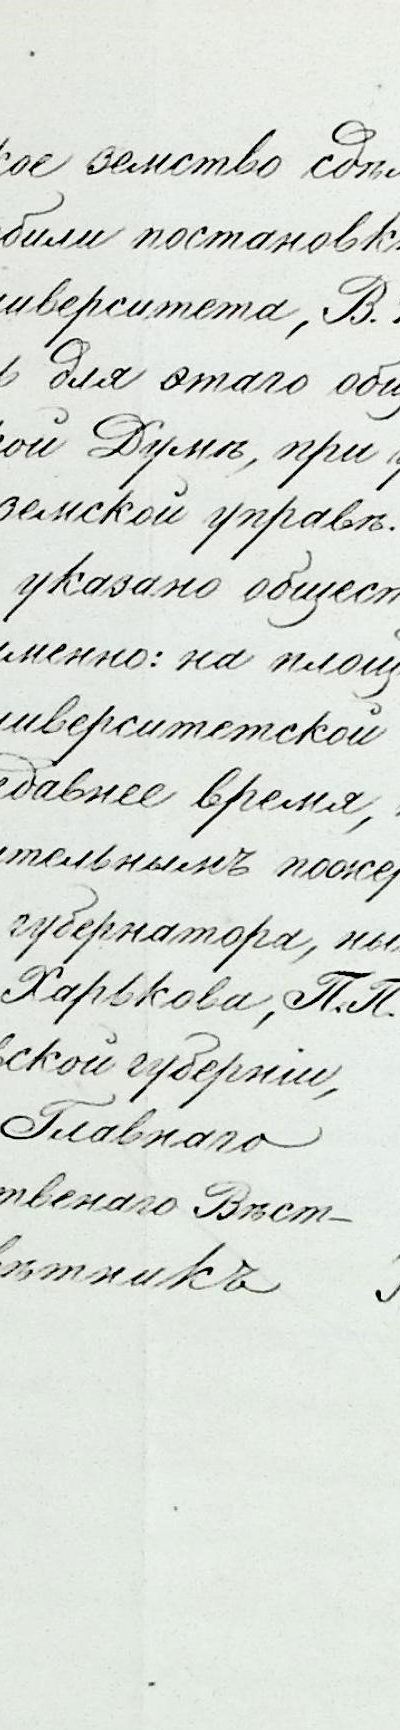 кое земство сдѣл
били постановк
иверситета, В.
для этаго общ
кой Думѣ, при у
земской управѣ.
указано общест
менно: на площ
иверситетской
едавнее время,
ительнымъ пожер
губернатора, ны
Харькова, П.П.
вской губерніи,
Главнаго
твенаго Вѣст-
вѣтникъ